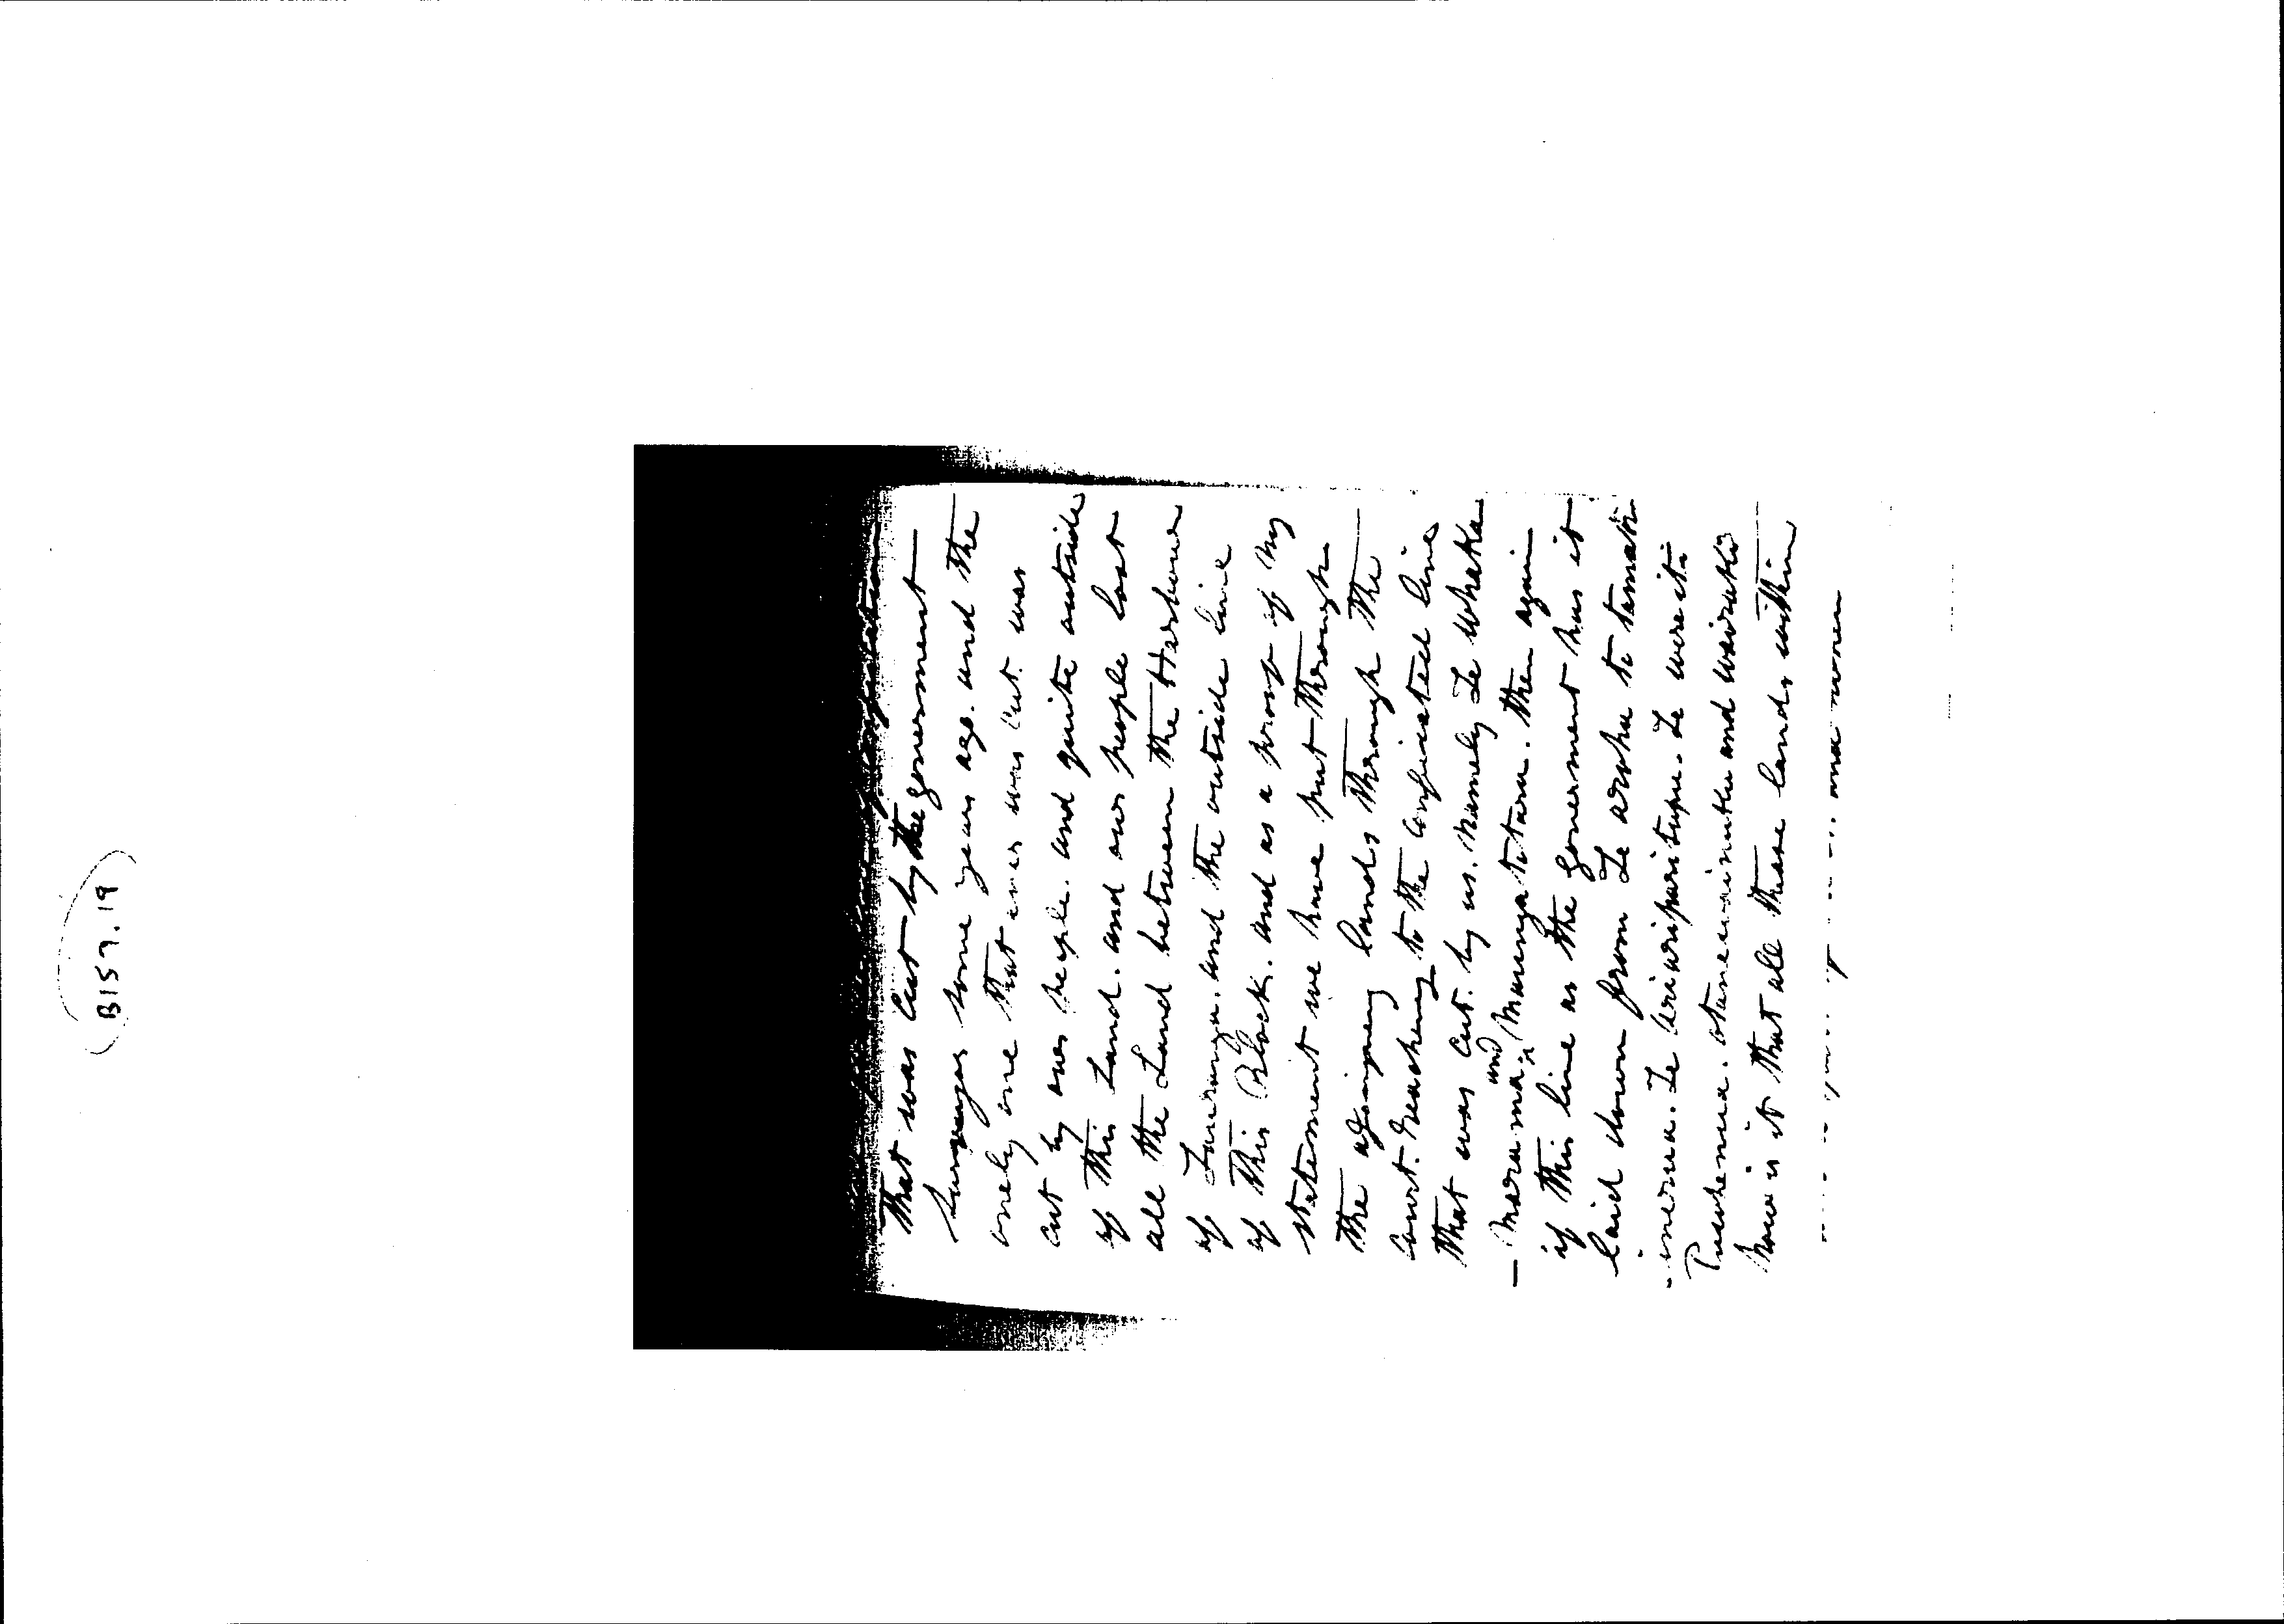 B157.19
confiscation
That was Cut by the government
surveyor some years ago. and the
onely one that ever was Cut. was
cut by our people. and quite outside
of this Land. and our people lost
all the Land between the Harbour
of Tauranga. and the outside line
of this Block. and as a proof of my
statement we have put through
the ajoining lands through the
Court. reaching to the Confiscated line
that was Cut. by us. namely Te Whaka
- marama. and Maungatotara. then again
if this line as the government has it
laid down from Te aroha to
Te Te wereiti
Puwhenua. and wairaki
how is it that all these lands within